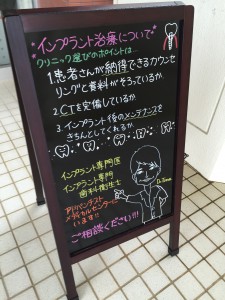 *インプラント治療について*
クリニック選びのポイントは…
1.患者さんが納得できるカウンセ
リングと資料がそろっているか
2.CTを完備しているか
3.インプラント後のメンテナンスを
きちんとしてくれるか
インプラント専門医
インプラント専門
歯科衛生士
メディカルセンターに
います!!
ご相談ください!!!